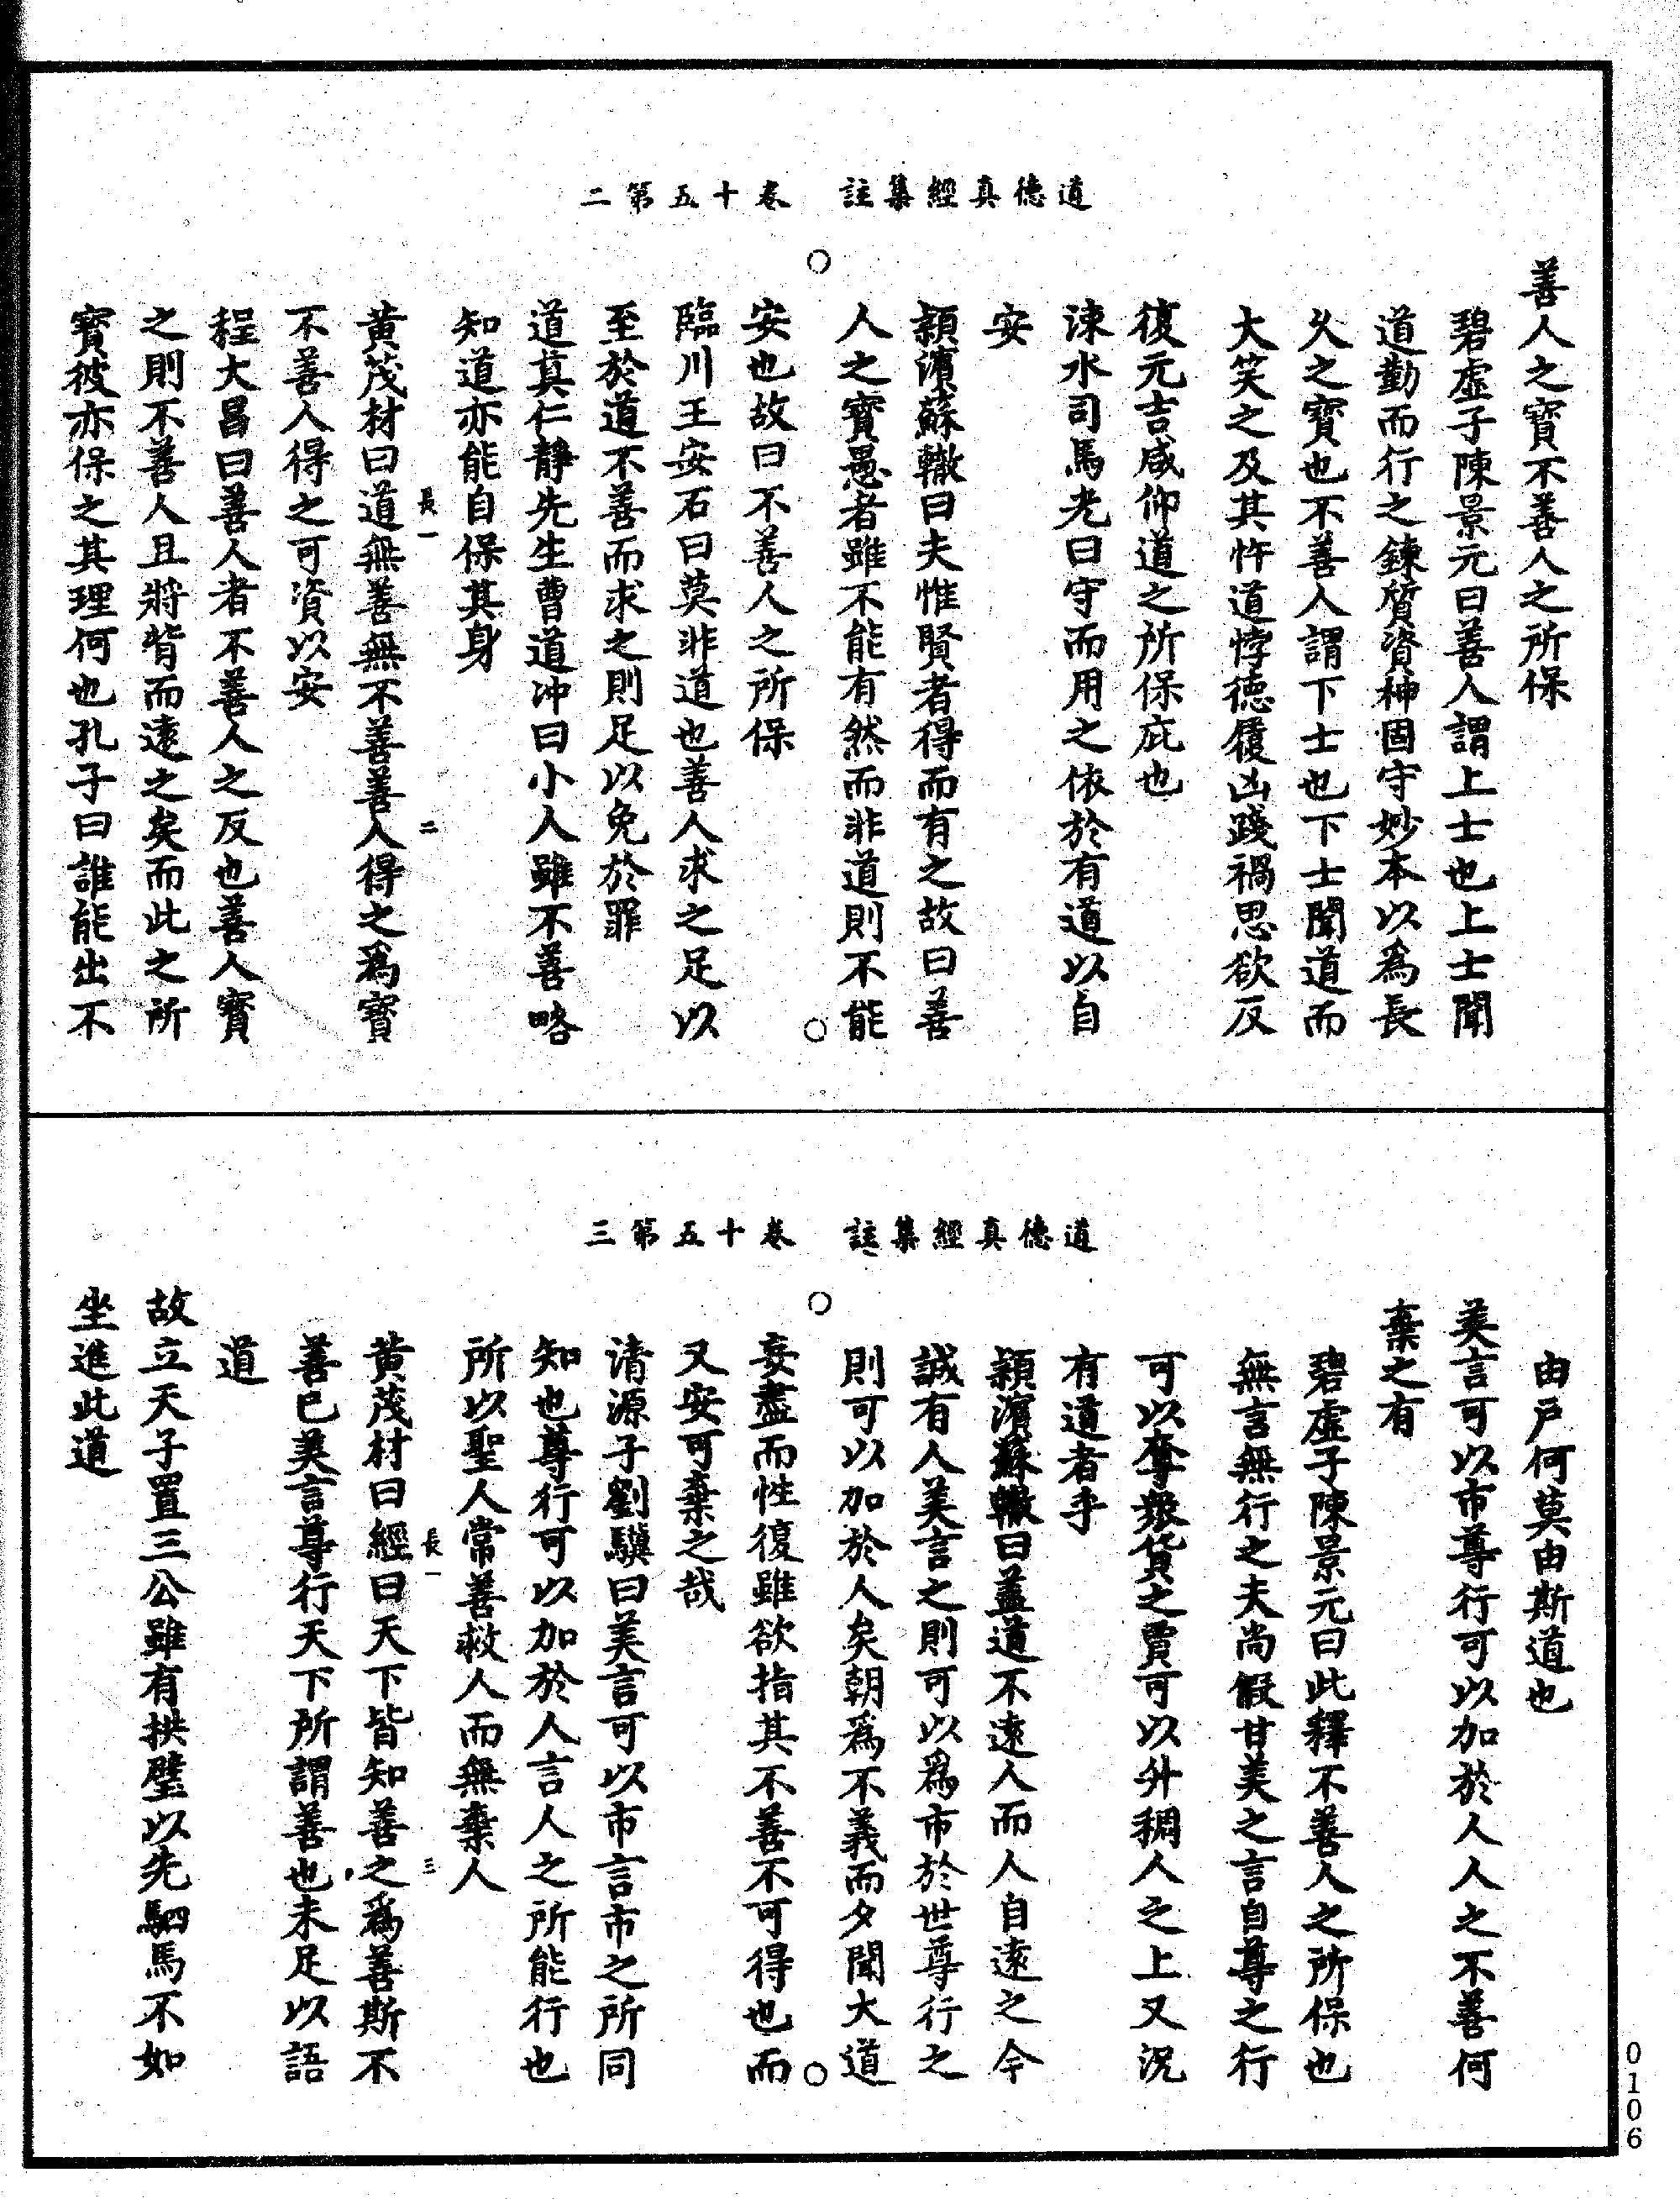 道德真經集註　卷十五第二
善人之寶不善人之所保
碧虛子陳景元曰善人謂上士也上士聞
道勤而行之鍊質資神固守妙本以爲長
久之寶也不善人謂下士也下士聞道而
大笑之及其忤道悖德履凶踐禍思欲反
復元吉咸仰道之所保庇也
涑水司馬光曰守而用之依於有道以自
安
頴濵蘇轍曰夫惟賢者得而有之故曰善
人之寶愚者雖不能有然而非道則不能
安也故曰不善人之所保
臨川王安石曰莫非道也善人求之足以
至於道不善而求之則足以免於罪
道真仁靜先生曹道冲曰小人雖不善略
知道亦能自保其身
長一　二
黄茂材曰道無善無不善善人得之爲寶
不善人得之可資以安
程大昌曰善人者不善人之反也善人寶
之則不善人且將背而遠之矣而此之所
寶彼亦保之其理何也孔子曰誰能出不
道德真經集註　卷十五第三
由戸何莫由斯道也
美言可以市尊行可以加於人人之不善何
棄之有
碧虛子陳景元曰此釋不善人之所保也
無言無行之夫尚假甘美之言自尊之行
可以奪衆貨之賈可以升稠人之上又況
有道者乎
頴濵蘇轍曰蓋道不遠人而人自遠之今
誠有人美言之則可以爲市於世尊行之
則可以加於人矣朝爲不義而夕聞大道
妄盡而性復雖欲指其不善不可得也而
又安可棄之哉
清源子劉驥曰美言可以市言市之所同
知也尊行可以加於人言人之所能行也
所以聖人常善救人而無棄人
長一　三
黄茂材曰經曰天下皆知善之爲善斯不
善已美言尊行天下所謂善也未足以語
道
故立天子置三公雖有拱璧以先駟馬不如
坐進此道
0106